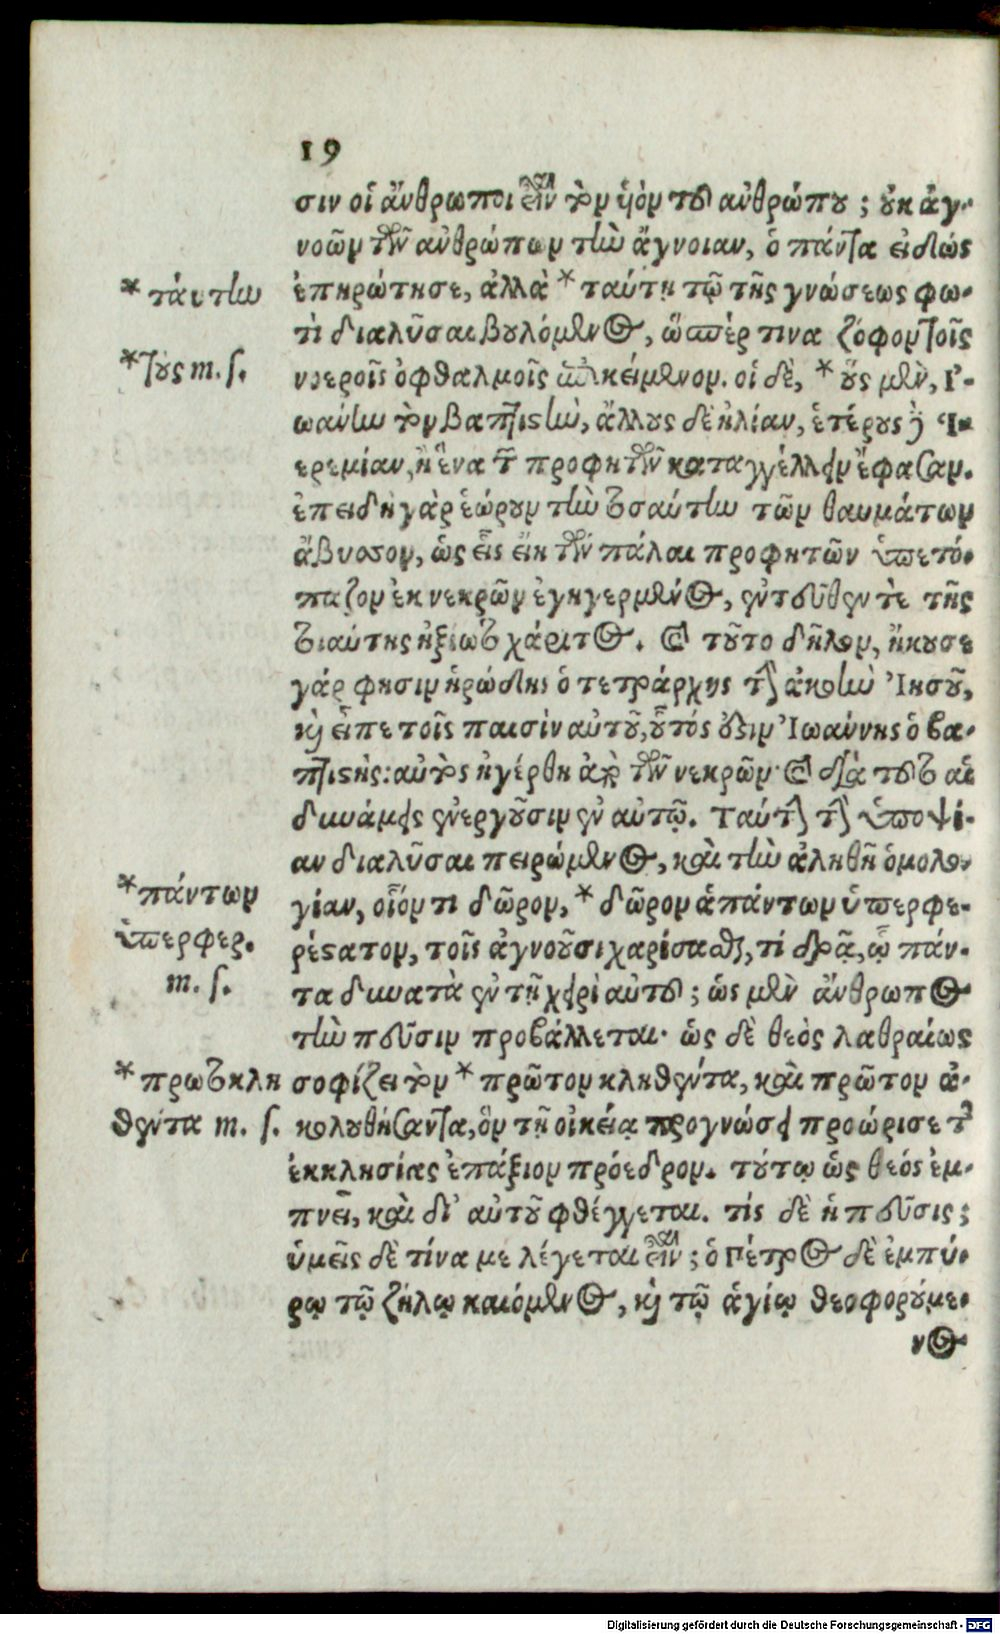 19
σιν οἱ ἄνθρωποι εἶναι τὸν υἱὸν τοῦ ἀνθρώπου; οὐκ ἀγ-
νοῶν τῶν ἀνθρώπων τὴν ἄγνοιαν, ὁ πάντα εἰδὼς
*ταύτην
ἐπηρώτησε, ἀλλὰ * ταύτῃ τῷ τῆς γνώσεως φω-
τὶ διαλῦσαι βουλόμενος, ὥσπέρ τινα ζόφον τοῖς
*τους m. s.
νοεροῖς ὀφθαλμοῖς ἐπικείμενον. οἱ δὲ, * οὓς μὲν, Ἰ-
ωάννην τὸν βαπτιστὴν, ἄλλους δὲ ἠλίαν, ἑτέρους δὲ Ἱ-
ερεμίαν, ἢ ἕνα τῶν προφητῶν καταγγέλλειν ἔφασαν.
ἐπειδὴ γὰρ ἑώρουν τὴν τοσαύτην τῶν θαυμάτων
ἄβυσσον, ὡς εἷς εἴη τῶν πάλαι προφητῶν ὑπετό-
παζον ἐκ νεκρῶν ἐγηγερμένος, ἐντεῦθέν τε τῆς
τοιαύτης ἠξίωτο χάριτος. καὶ τοῦτο δῆλον, ἤκουσε
γάρ φησιν ἡρώδης ὁ τετράρχης τὴν ἀκοὴν Ἰησοῦ,
καὶ εἶπε τοῖς παισὶν αὐτοῦ, οὗτός ἐστιν Ἰωάννης ὁ βα-
πτιστής: αὐτὸς ἠγέρθη ἀπὸ τῶν νεκρῶν· καὶ διὰ τοῦτο αἱ
δυνάμεις ἐνεργοῦσιν ἐν αὐτῷ. Ταύτην τὴν ὑποψί-
αν διαλῦσαι πειρώμενος, καὶ τὴν ἀληθῆ ὁμολο-
*πάντων
γίαν, οἷόν τι δῶρον, * δῶρον ἁπάντων ὑπερφε-
ὑπερφερ.
ρέστατον, τοῖς ἀγνοοῦσι χαρίσασθαι, τί δρᾷ, ᾧ πάν-
m. s.
τα δυνατὰ ἐν τῇ χειρὶ αὐτοῦ; ὡς μὲν ἄνθρωπος
τὴν πεῦσιν προβάλλεται· ὡς δὲ θεὸς λαθραίως
*πρωτοκλη
σοφίζει τὸν * πρῶτον κληθέντα, καὶ πρῶτον ἀ-
θέντα m. s.
κολουθήσαντα, ὃν τῇ οἰκείᾳ προγνώσει προώρισε τῆς
ἐκκλησίας ἐπάξιον πρόεδρον. τούτῳ ὡς θεός ἐμ-
πνεῖ, καὶ δι' αὐτοῦ φθέγγεται. τίς δὲ ἡ πεῦσις;
ὑμεῖς δὲ τίνα με λέγεται εἶναι; ὁ Πέτρος δὲ ἐμπύ-
ρῳ τῷ ζήλῳ καιόμενος, καὶ τῷ ἁγίῳ θεοφορούμε-
νος
Digitalisierung gefördert durch die Deutsche Forschungsgemeinschaft - DFG